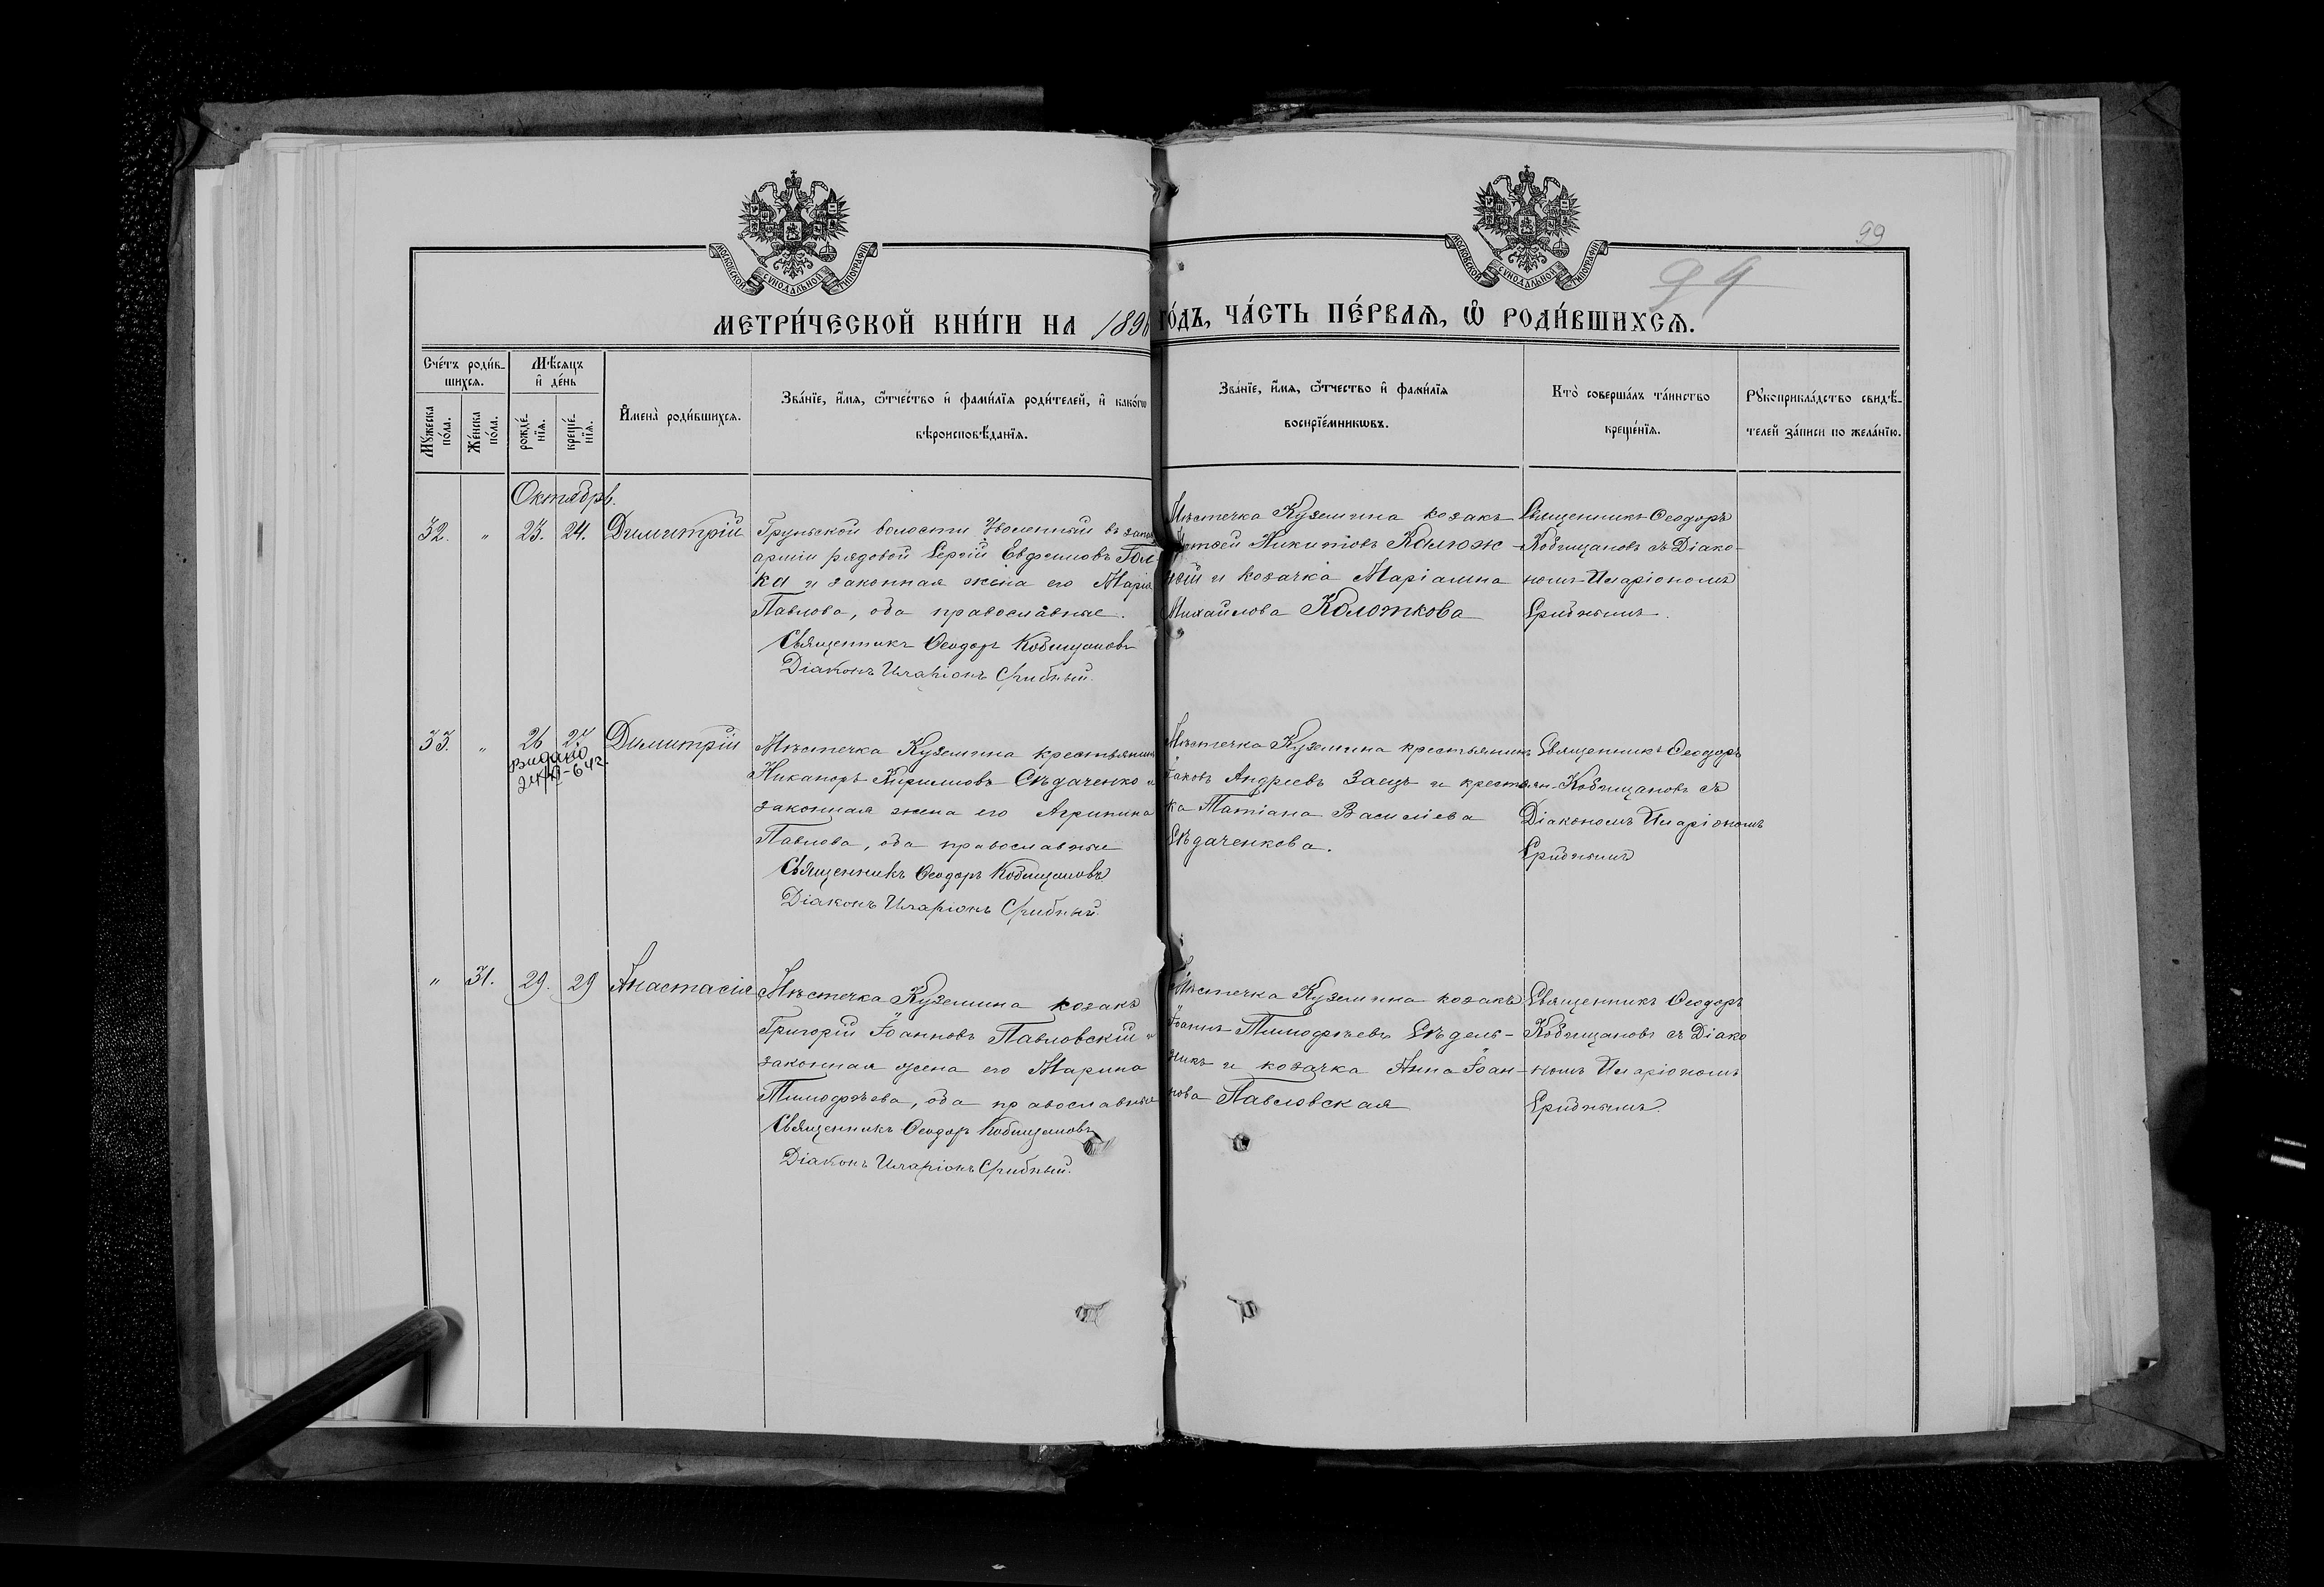 99
94
МОСКОВСКОЙ СѴНОДАЛЬНОЙ ТИПОГРАФІИ
МОСКОВСКОЙ СѴНОДАЛЬНОЙ ТИПОГРАФІИ
МЕТРИ́ЧЕСКОЙ КНИ́ГИ НА 189
ГО́ДЪ, ЧА́СТЬ ПЕ́РВАѦ, Ѡ҆ РОДИ́ВШИХСѦ.
Сче́тъ роди́вшихсѧ.
Мꙋ́жеска по́ла.
Же́нска по́ла.
Мѣ́сѧцъ и҆ де́нь
рожде́нїѧ.
креще́нїѧ.
И҆мена̀ роди́вшихсѧ.
Зва́нїе, и҆́мѧ, ѻ҆́тчество и҆ фами́лїѧ роди́телей, и҆ како́гѡ
вѣроисповѣ́данїѧ.
Зва́нїе, и҆́мѧ, ѻ҆́тчество и҆ фами́лїѧ
воспрїе́мникѡвъ.
Кто̀ соверша́лъ та́инство
креще́нїѧ.
Рꙋкоприкла́дство свидѣ́-
телей за́писи по жела́нїю.
Октябрь.
32. " 23. 24. Димитрій
Грунской волости Уволенный въ запас
арміи рядовой Сергій Евфимовъ Гол-
ка и законная жена его Марія
Павлова, оба православные.
Священникъ Ѳеодоръ Кобищановъ
Діаконъ Иларіонъ Срибный.
Мѣстечка Куземина козакъ
Никитовъ Калюж-
ный и козачка Маріамна
Михайлова Колоткова
Священникъ Ѳеодоръ
Кобищановъ съ Діако-
номъ Иларіономъ
Срибнымъ.
33. " 26 27 Димитрій
видано
Мѣстечка Куземина крестьянинъ
Никаноръ Кириловъ Сѣдаченко и
законная жена его Агрипина
Павлова, оба православные
Священникъ Ѳеодоръ Кобищановъ
Діаконъ Иларіонъ Срибный.
Мѣстечка Куземина крестьянинъ
Іаковъ Андреевъ Заецъ и крестьян-
ка Татіана Василіева
Сѣдаченкова.
Священникъ Ѳеодоръ
Кобищановъ съ
Діакономъ Иларіономъ
Срибнымъ
" 31. 29. 29 Анастасія
Мѣстечка Куземина козакъ
Григорій Іоанновъ Павловскій и
законная жена его Марина
Тимофѣева, оба православные
Священникъ Ѳеодоръ Кобищановъ
Діаконъ Иларіонъ Срибный.
Мѣстечка Куземина козакъ
Іоаннъ Тимофѣевъ Сѣдель-
никъ и козачка Анна Іоан-
нова Павловская
Священникъ Ѳеодоръ
Кобищановъ съ Діако
номъ Иларіономъ
Срибнымъ.